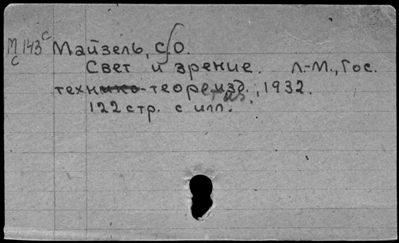 М 143 с Майзель, С. О.
с
Свет и зрение. Л.-М., Гос.
техн.-теорет. изд., 1932.
122 стр. с илл.